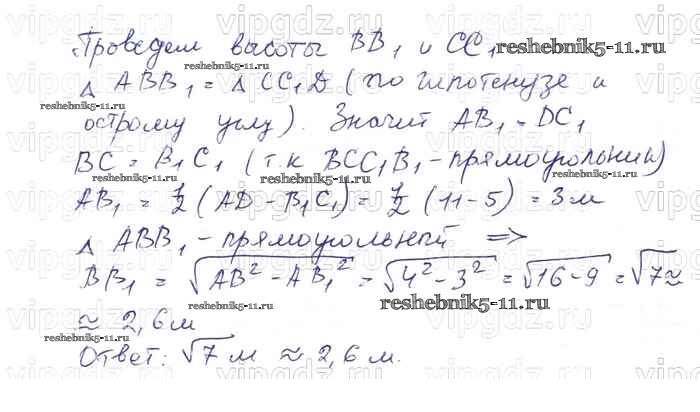 Проведем высоты BB₁ и CC₁
△ ABB₁ = △ CC₁D (по гипотенузе и
острому углу). Значит AB₁ = DC₁
BC = B₁C₁ (т.к BCC₁B₁ - прямоугольник)
AB₁ = 1/2 (AD - B₁C₁) = 1/2 (11 - 5) = 3 м
△ ABB₁ - прямоугольный =>
BB₁ = √(AB² - AB₁²) = √(4² - 3²) = √(16 - 9) = √7 ≈
≈ 2,6 м
Ответ: √7 м ≈ 2,6 м.
reshebnik5-11.ru
reshebnik5-11.ru
reshebnik5-11.ru
reshebnik5-11.ru
reshebnik5-11.ru
reshebnik5-11.ru
reshebnik5-11.ru
vipgdz.ru